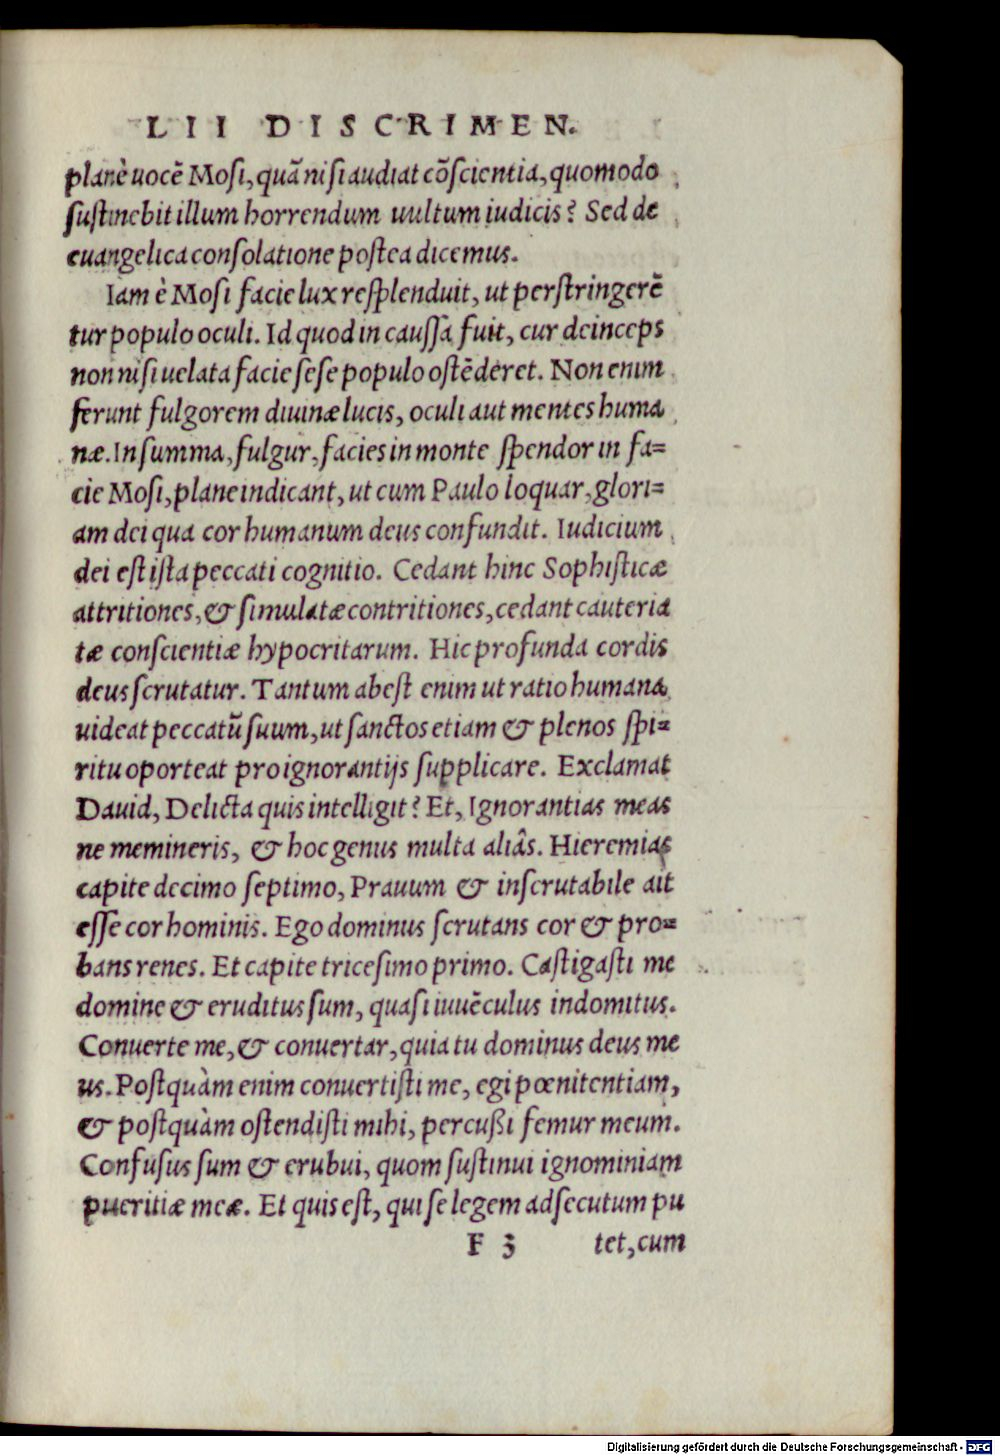 LII DISCRIMEN.
planè uocē Mosi, quā nisi audiat cōscientia, quomodo
sustinebit illum horrendum uultum iudicis? Sed de
euangelica consolatione postea dicemus.
Iam è Mosi facie lux resplenduit, ut perstringerē
tur populo oculi. Id quod in caussa fuit, cur deinceps
non nisi uelata facie sese populo ostēderet. Non enim
ferunt fulgorem diuinæ lucis, oculi aut mentes huma
næ. In summa, fulgur, facies in monte spendor in fa=
cie Mosi, plane indicant, ut cum Paulo loquar, glori=
am dei qua cor humanum deus confundit. Iudicium
dei est ista peccati cognitio. Cedant hinc Sophisticæ
attritiones, & simulatæ contritiones, cedant cauteria
tæ conscientiæ hypocritarum. Hic profunda cordis
deus scrutatur. Tantum abest enim ut ratio humana
uideat peccatū suum, ut sanctos etiam & plenos spi=
ritu oporteat pro ignorantijs supplicare. Exclamat
Dauid, Delicta quis intelligit? Et, Ignorantias meas
ne memineris, & hoc genus multa aliâs. Hieremias
capite decimo septimo, Prauum & inscrutabile ait
esse cor hominis. Ego dominus scrutans cor & pro=
bans renes. Et capite tricesimo primo. Castigasti me
domine & eruditus sum, quasi iuuēculus indomitus.
Conuerte me, & conuertar, quia tu dominus deus me
us. Postquàm enim conuertisti me, egi pœnitentiam,
& postquàm ostendisti mihi, percußi femur meum.
Confusus sum & erubui, quom sustinui ignominiam
pueritiæ meæ. Et quis est, qui se legem adsecutum pu
F 3 tet, cum
Digitalisierung gefördert durch die Deutsche Forschungsgemeinschaft - DFG